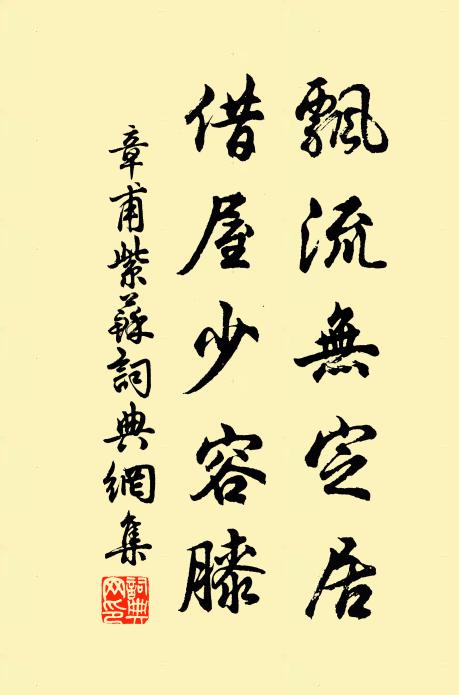 飄流無定居
借屋少容膝
章甫紫蘇詞典網集
詞典網印